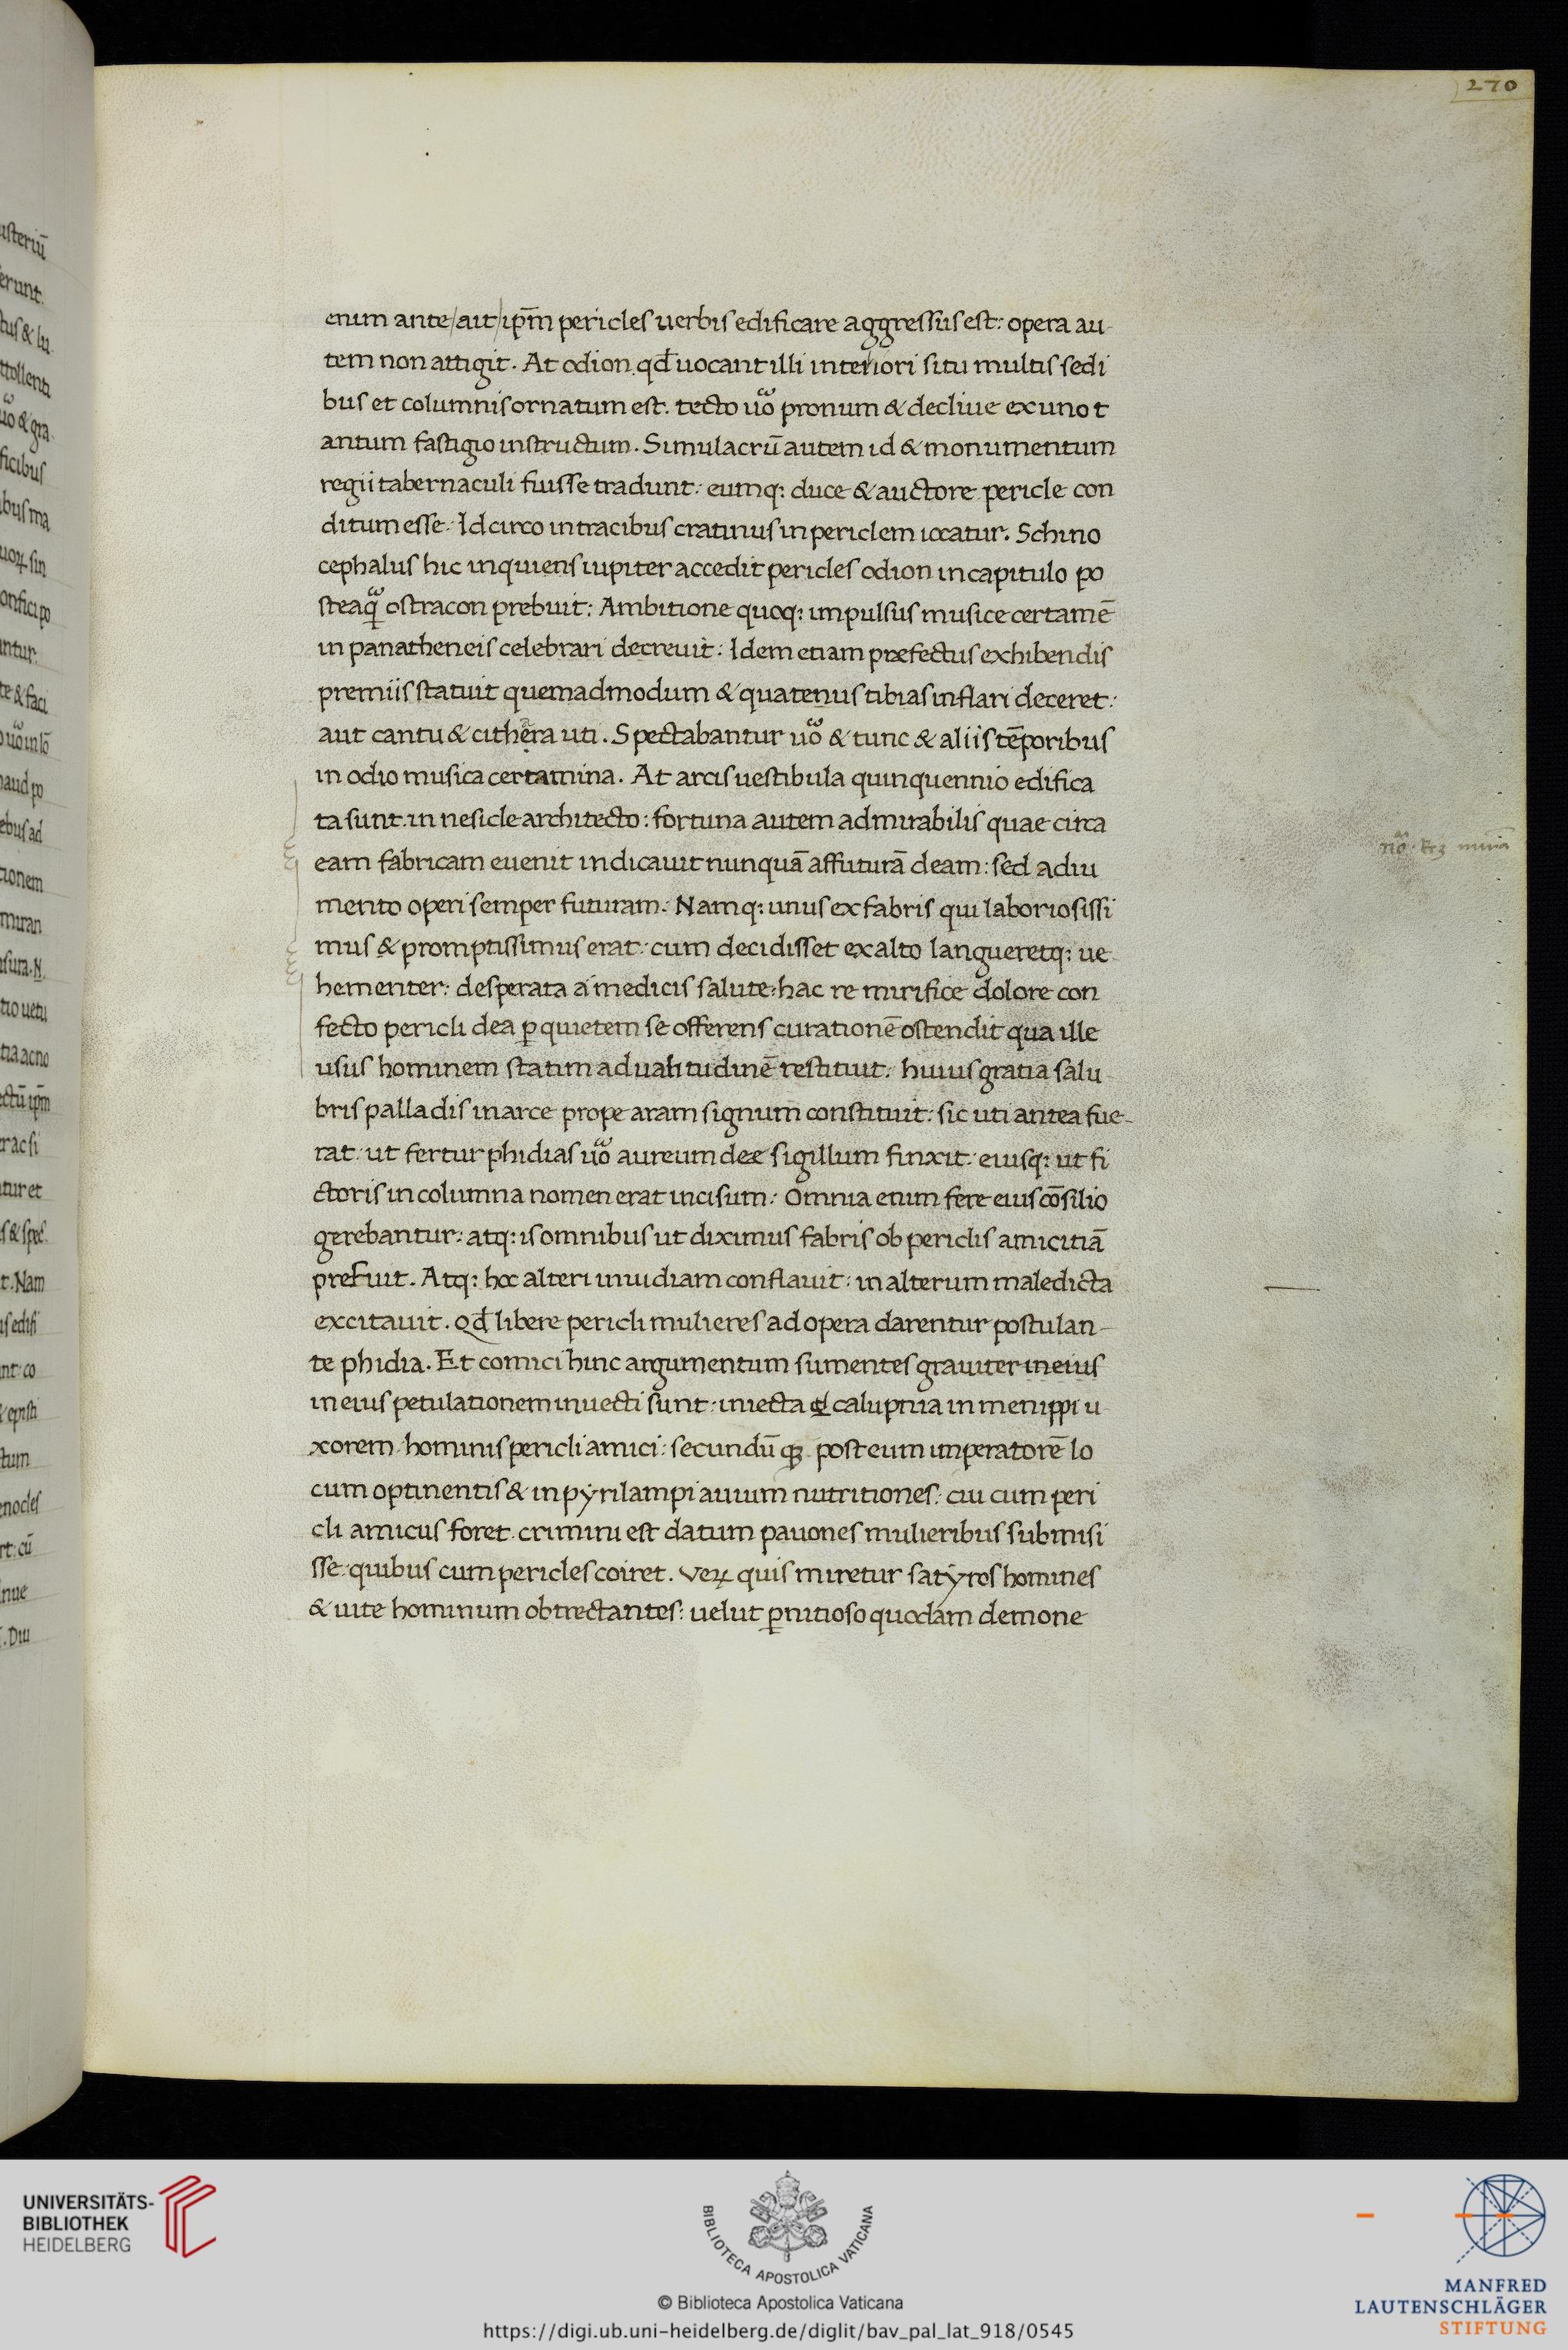 270
enim ante/ait/ip̄m pericles uerbis edificare aggressus est: opera au-
tem non attigit. At odion qđ uocant illi interiori situ multis sedi
bus et columnis ornatum est. tecto uo᷃ pronum & decliue ex uno t
antum fastigio instructum. Simulacrū autem id & monumentum
regii tabernaculi fuisse tradunt: eumq: duce & auctore pericle con
ditum esse: Idcirco in tracibus cratinus in periclem iocatur. Schino
cephalus hic inquiens iupiter accedit pericles odion in capitulo po
steaq̄ ostracon prebuit: Ambitione quoq: impulsus musice certamē
in panatheneis celebrari decreuit: Idem etiam praefectus exhibendis
premiis statuit quemadmodum & quatenus tibias inflari deceret:
aut cantu & cithera uti. Spectabantur uo᷃ & tunc & aliis tēporibus
in odio musica certamina. At arcis uestibula quinquennio edifica
ta sunt in nesicle architecto: fortuna autem admirabilis quae circa
eam fabricam euenit indicauit nunquā affuturā deam: sed adiu
mento operi semper futuram: Namq: unus ex fabris qui laboriosissi
mus & promptissimus erat: cum decidisset ex alto langueretq: ue
hementer: desperata a medicis salute: hac re mirifice dolore con
fecto pericli dea ꝑ quietem se offerens curationē ostendit qua ille
usus hominem statim ad ualitudinē restituit: huius gratia salu
bris palladis in arce prope aram signum constituit: sic uti antea fue-
rat: ut fertur phidias uo᷃ aureum deae sigillum finxit: eiusq: ut fi
ctoris in columna nomen erat incisum: Omnia enim fere eius cōsilio
gerebantur: atq: is omnibus ut diximus fabris ob periclis amicitiā
prefuit. Atq: hoc alteri inuidiam conflauit: in alterum maledicta
excitauit. Qđ libere pericli mulieres ad opera darentur postulan-
te phidia. Et comici hinc argumentum sumentes grauiter in eius
in eius petulationem inuecti sunt: iniecta calupnia in menippi u
xorem hominis pericli amici: secundū post eum imperatorē lo
cum optinentis & in pyrilampi auium nutritiones: cui cum peri
cli amicus foret crimini est datum pauones mulieribus submisi
sse: quibus cum pericles coiret. Veꝝ quis miretur satyros homines
& uite hominum obtrectantes: uelut ꝑnitioso quodam demone
UNIVERSITÄTS-
BIBLIOTHEK
HEIDELBERG
BIBLIOTECA APOSTOLICA VATICANA
© Biblioteca Apostolica Vaticana
https://digi.ub.uni-heidelberg.de/diglit/bav_pal_lat_918/0545
MANFRED
LAUTENSCHLÄGER
STIFTUNG